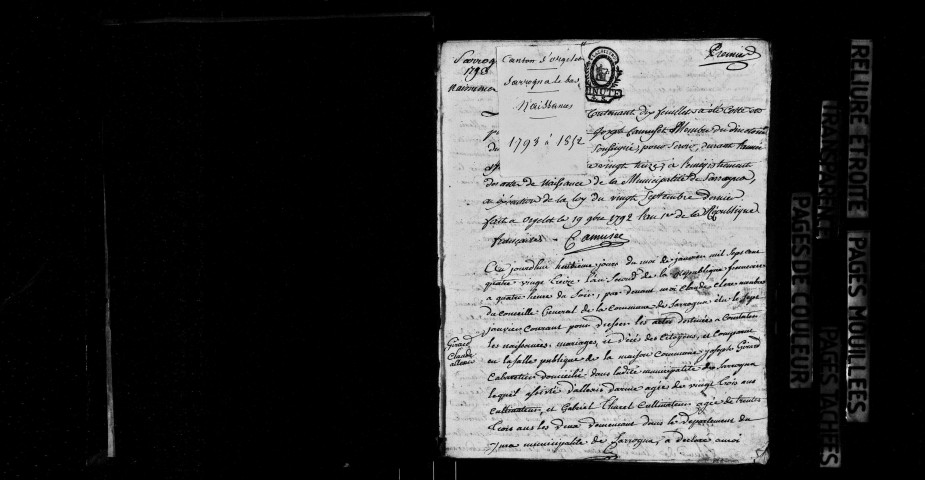 Premier
Sarrog
1793
Naissance
Canton d'orgelet
Sarrogna le bas
Naissances
1793 à 1812
MINUTE
Contenant dix feuillets a été Cotté et
Joseph Camuset Membre du directoire
Soussigné, pour Servir, durant l'année
vingt treize, à l'enregistrement
des actes de Naissance de la Municipalité de Sarrogna,
a exécution de la loy du vingt Septembre dernier
fait a Orgelet le 19 9bre 1792 l'an 1er de la République
françaises. Camuset
Ce jourdhui huitième jours du moi de janvier mil Sept cent
quatre vingt treize l'an Second de la République francaise
a quatre heure de Soir, par devant moi Claude clerc membre
du conseille General de la Commune de Sarrogna élu le Sept
janvier Courant pour dresser les actes destinés a Constater
les naissances, mariages, et décés des Citoyens, et Comparue
en la salle publique de la maison Commune joseph Girard
Cabaretier domicilié dans ladite municipalité de Sarrogna
lequel assisté d'allexis agée de vingt trois ans
Cultivateur, et Gabriel Cultivateur agée de trentes
trois ans les deux demeurant dans le departement du
jura municipalité de Sarrogna, a déclaré a moi
Girard
Claude
allexis
RELIURE ETROITE
TRANSPARENCE
PAGES DE COULEUR
PAGES MOUILLEES
PAGES TACHEES